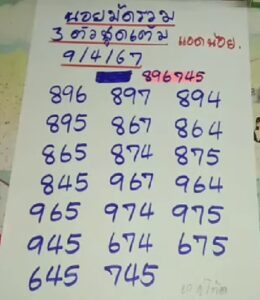 นอยมัดรวม
3 ตัวชุดเต็ม แอดน้อย.
9/4/67
896745
896 897 894
895 867 864
865 874 875
845 967 964
965 974 975
945 674 675
645 745